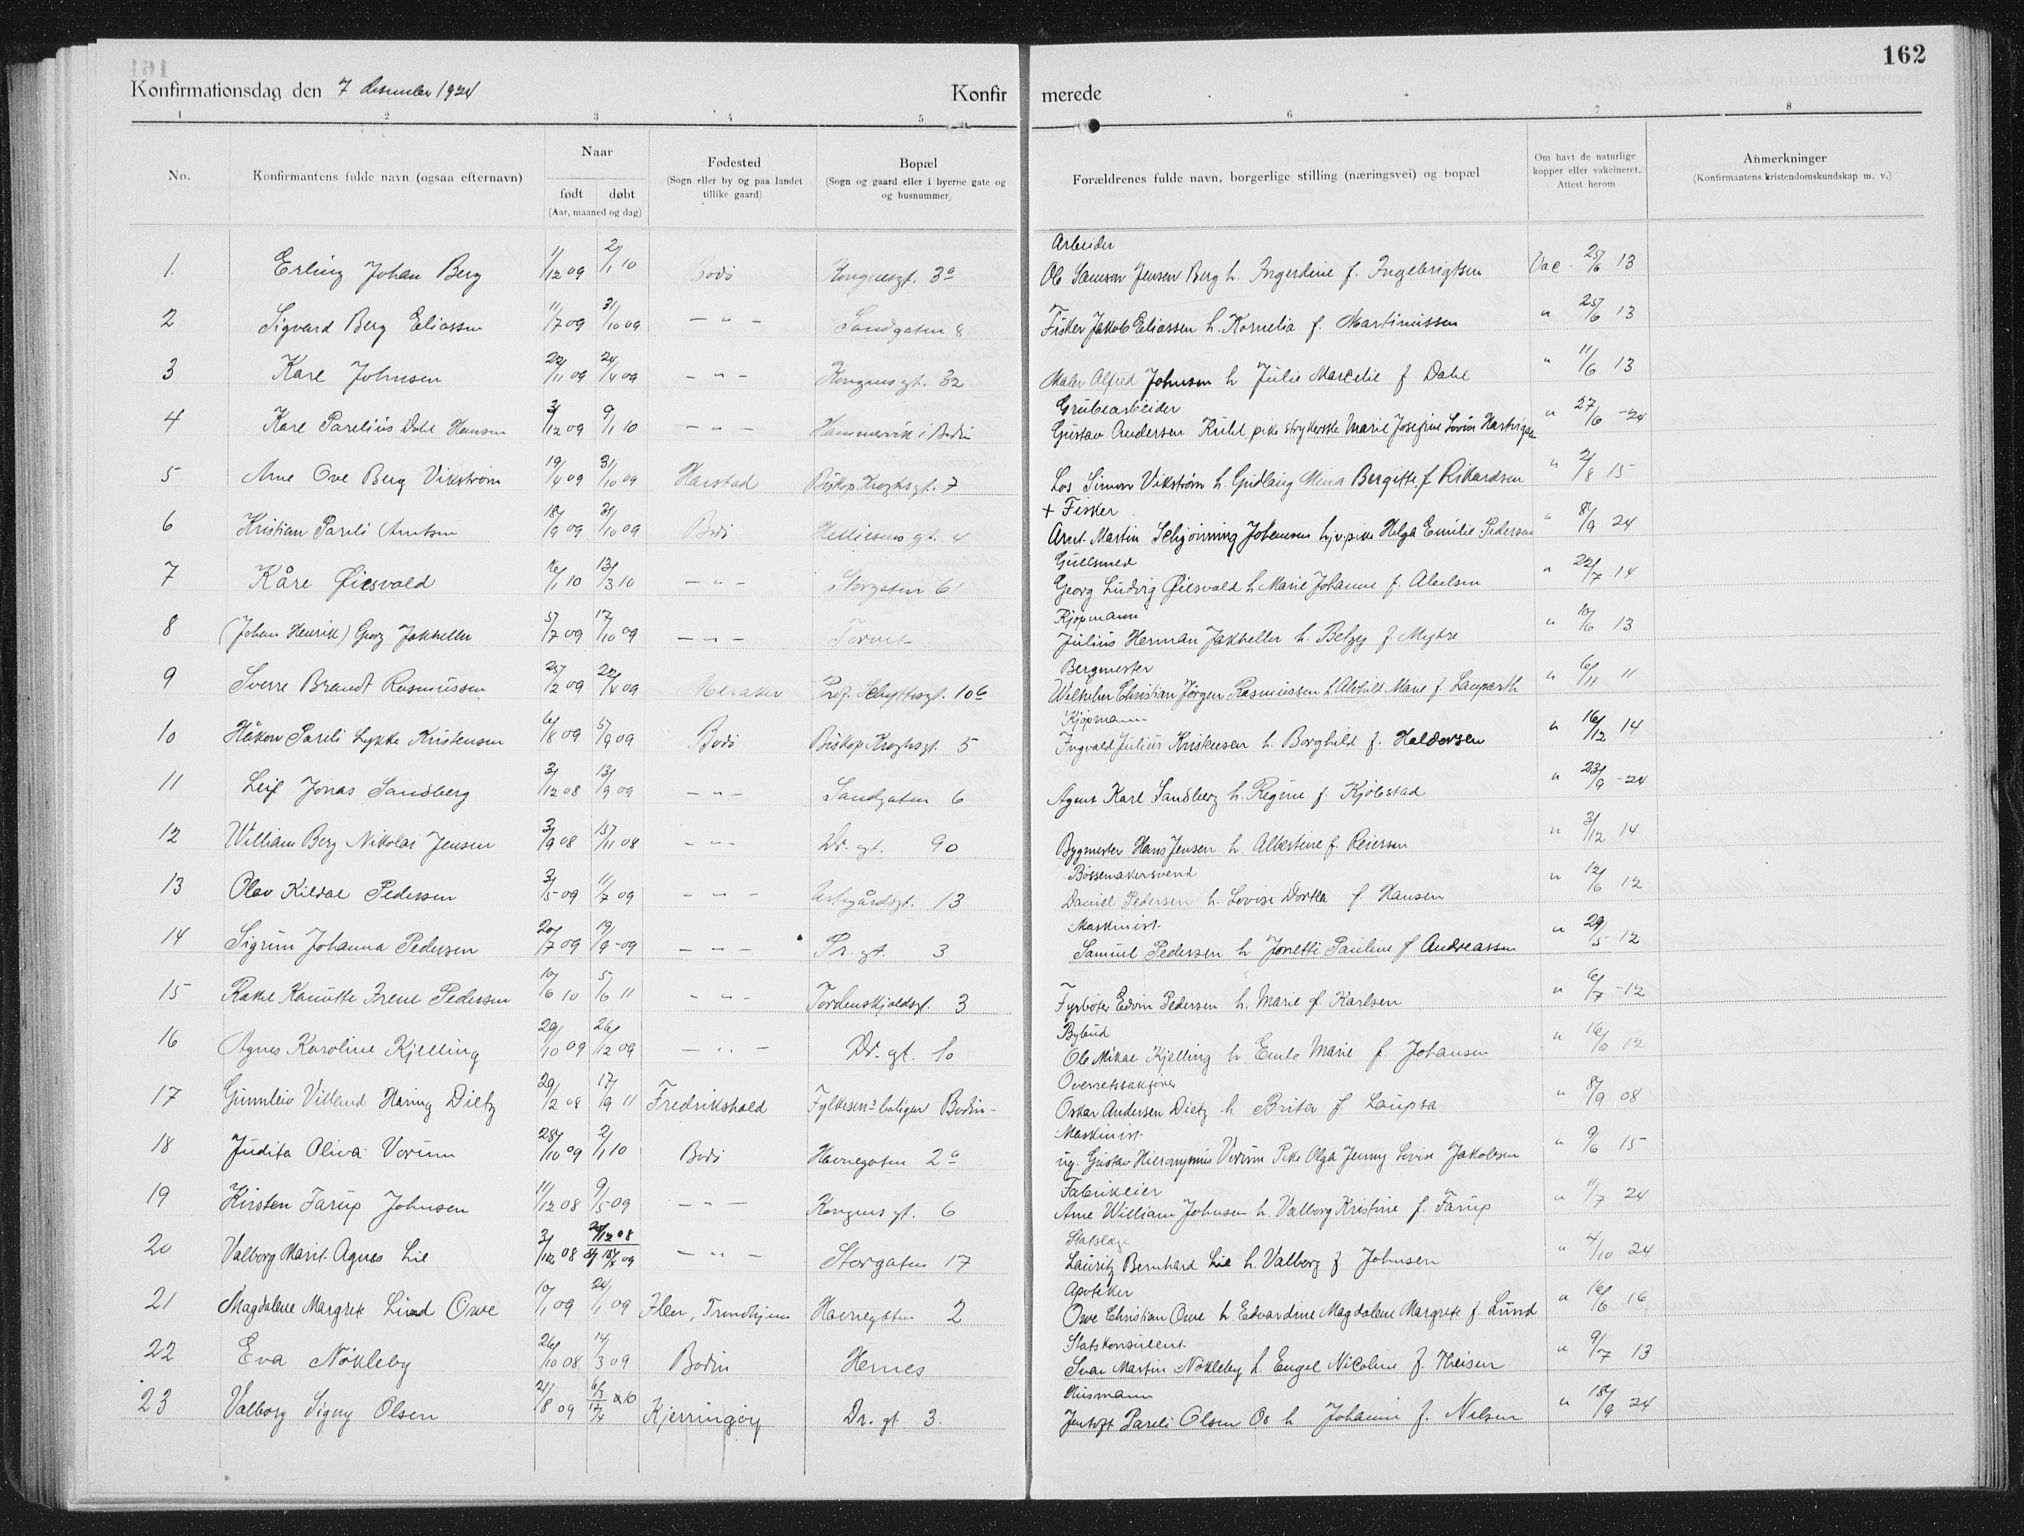 162
Konfirmationsdag den 7 desember 1924
Konfirmerede
1 2 3 4 5 6 7 8
No. Konfirmantens fulde navn (ogsaa efternavn) Naar født døbt (Aar, maaned og dag) Fødested (Sogn eller by og paa landet tillike gaard) Bopæl (Sogn og gaard eller i byerne gate og og husnummer) Forældrenes fulde navn, borgerlige stilling (næringsvei) og bopæl Om havt de naturlige kopper eller vakcineret. Attest herom Anmerkninger (Konfirmantens kristendomskundskap m. v.)
Arbeider
1. Erling Johan Berg 1/12 09 2/1 10 Bodø Kongensgt. 3a Ole Samson Jensen Berg h. Ingerdine f. Ingebrigtsen Vac. 25/6 13
2 Sigvard Berg Eliassen 11/7 09 31/10 09 — " — Sandgaten 8 Fisker Jakob Eliassen h. Kornelia f. Martinussen " 25/6 13
3 Kare Johnsen 22/11 09 24/4 09 — " — Kongens gt. 32 Maler Alfred Johnsen h Julie Marcelie f Dahl " 11/6 13
Grubearbeider
4 Kare Parelius Dahl Hansen 3/12 09 9/1 10 — " — Hammervik i Bodin Gustav Andersen Kuhl, pike strykerske Marie Josefine Lovise Hartvigsen " 27/6 -24
5 Arne Ove Berg Vikstrøm 19/4 09 31/10 09 Harstad Biskop Kroghsgt. 7 Los Simon Vikstrøm h. Gudlaug Mina Bergitte f Rikardsen " 2/8 15
+ Fisker
6 Kristian Pareli Arntsen 18/9 09 31/10 09 Bodø Helliesens gt. 4 Arnt Martin Schjønning Johansen h, v. pike Helga Emilie Pedersen " 8/9 24
Gullsmed
7 Kåre Øiesvold 16/1 10 13/3 10 — " — Storgaten 61 Georg Ludvig Øiesvold h. Marie Johanne f Abelsen " 22/7 14
Kjøpmann
8 (Johan Henrik) Georg Jakheller 5/7 09 17/10 09 — " — Torvet Julius Herman Jakheller h. Betzy f Myhre " 10/6 13
Bergmester
9 Sverre Brandt Rasmussen 25/2 09 22/4 09 Meraker Prof. Schyttesgt. 10b Wilhelm Christian Jørgen Rasmussen h Alvhild Marie f. Lauparth " 6/11 11
Kjøpmann
10 Håkon Pareli Lykke Kristensen 6/8 09 5/9 09 Bodø Biskop Kroghsgt. 5 Ingvald Julius Kristensen h. Borghild f. Haldorsen " 16/12 14
11 Leif Jonas Sandberg 3/12 08 13/9 09 — " — Sandgaten 6 Agent Karl Sandberg h. Regine f Kjølstad " 23/9 -24
12 William Berg Nikolai Jensen 3/9 08 15/11 08 — " — Dr. gt. 90 Bygmester Hans Jensen h. Albertine f. Reiersen " 3/12 14
Bøssemakersvend
13 Olav Kildal Pedersen 3/5 09 11/7 09 — " — 13 Daniel Pedersen h. Lovise Dorthea f Hansen " 12/6 12
Maskinist
14 Sigrun Johanna Pedersen 20/7 09 19/9 -09 — " — Pr. gt. 3 Samuel Pedersen h Jonetti Pauline f Andreassen " 29/5 -12
15 Rakel Kanutte Irene Pedersen 10/6 10 5/6 11 — " — Tordenskjoldsgt. 3 Fyrbøter Edvin Pedersen h. Marie f Karlsen " 6/7 -12
Bybud
16 Agnes Karoline Kjelling 29/10 09 26/12 09 — " — Dr. gt. 10 Ole Mikal Kjelling h. Emle Marie f. Johansen " 16/6 12
Overretssakfører
17 Gunnleiv Villand Haring Dietz 29/2 08 17/9 11 Fredrikshald Fylkesen's boliger Bodin- Oskar Andersen Dietz h Brita f Laupsa " 8/9 08
Maskinist
18 Judita Oliva Vorum 28/10 09 2/1 10 Bodø Havnegaten 2a ug. Gustav Hieronymus Vorum Pike Olga Jenny Lovise Jakobsen " 9/6 15
Fabrikeier
19 Kirsten Farup Johnsen 11/12 08 9/5-09 — " — Kongens gt. 6 Arne William Johnsen h. Valborg Kristine f. Farup " 11/7 24
Statslæge
20 Valborg Marit Agnes Lie 3/12 08 24/12 08 18/8 09 — " — Storgaten 17 Lauritz Bernhard Lie h. Valborg f Johnsen " 4/10 24
Apoteker
21 Magdalene Margrete Lund Owe 10/1 09 24/1 09 Ilen, Trondhjem Havnegaten 2 Owe Christian Owe h. Edvardine Magdalene Margrete f. Lund " 16/6 16
Statskonsulent
22 Eva Nøkleby 26/10 08 14/3 09 Bodin Hernes Ivar Martin Nøkleby h. Engel Nicoline f. Theisen " 9/7 13
Husmann
23 Valborg Signy Olsen 21/8 09 6/3 17/4 10 Kjerringøy Dr. gt 3. Jentoft Pareli Olsen Os h Johanne f. Nilsen " 18/9 24